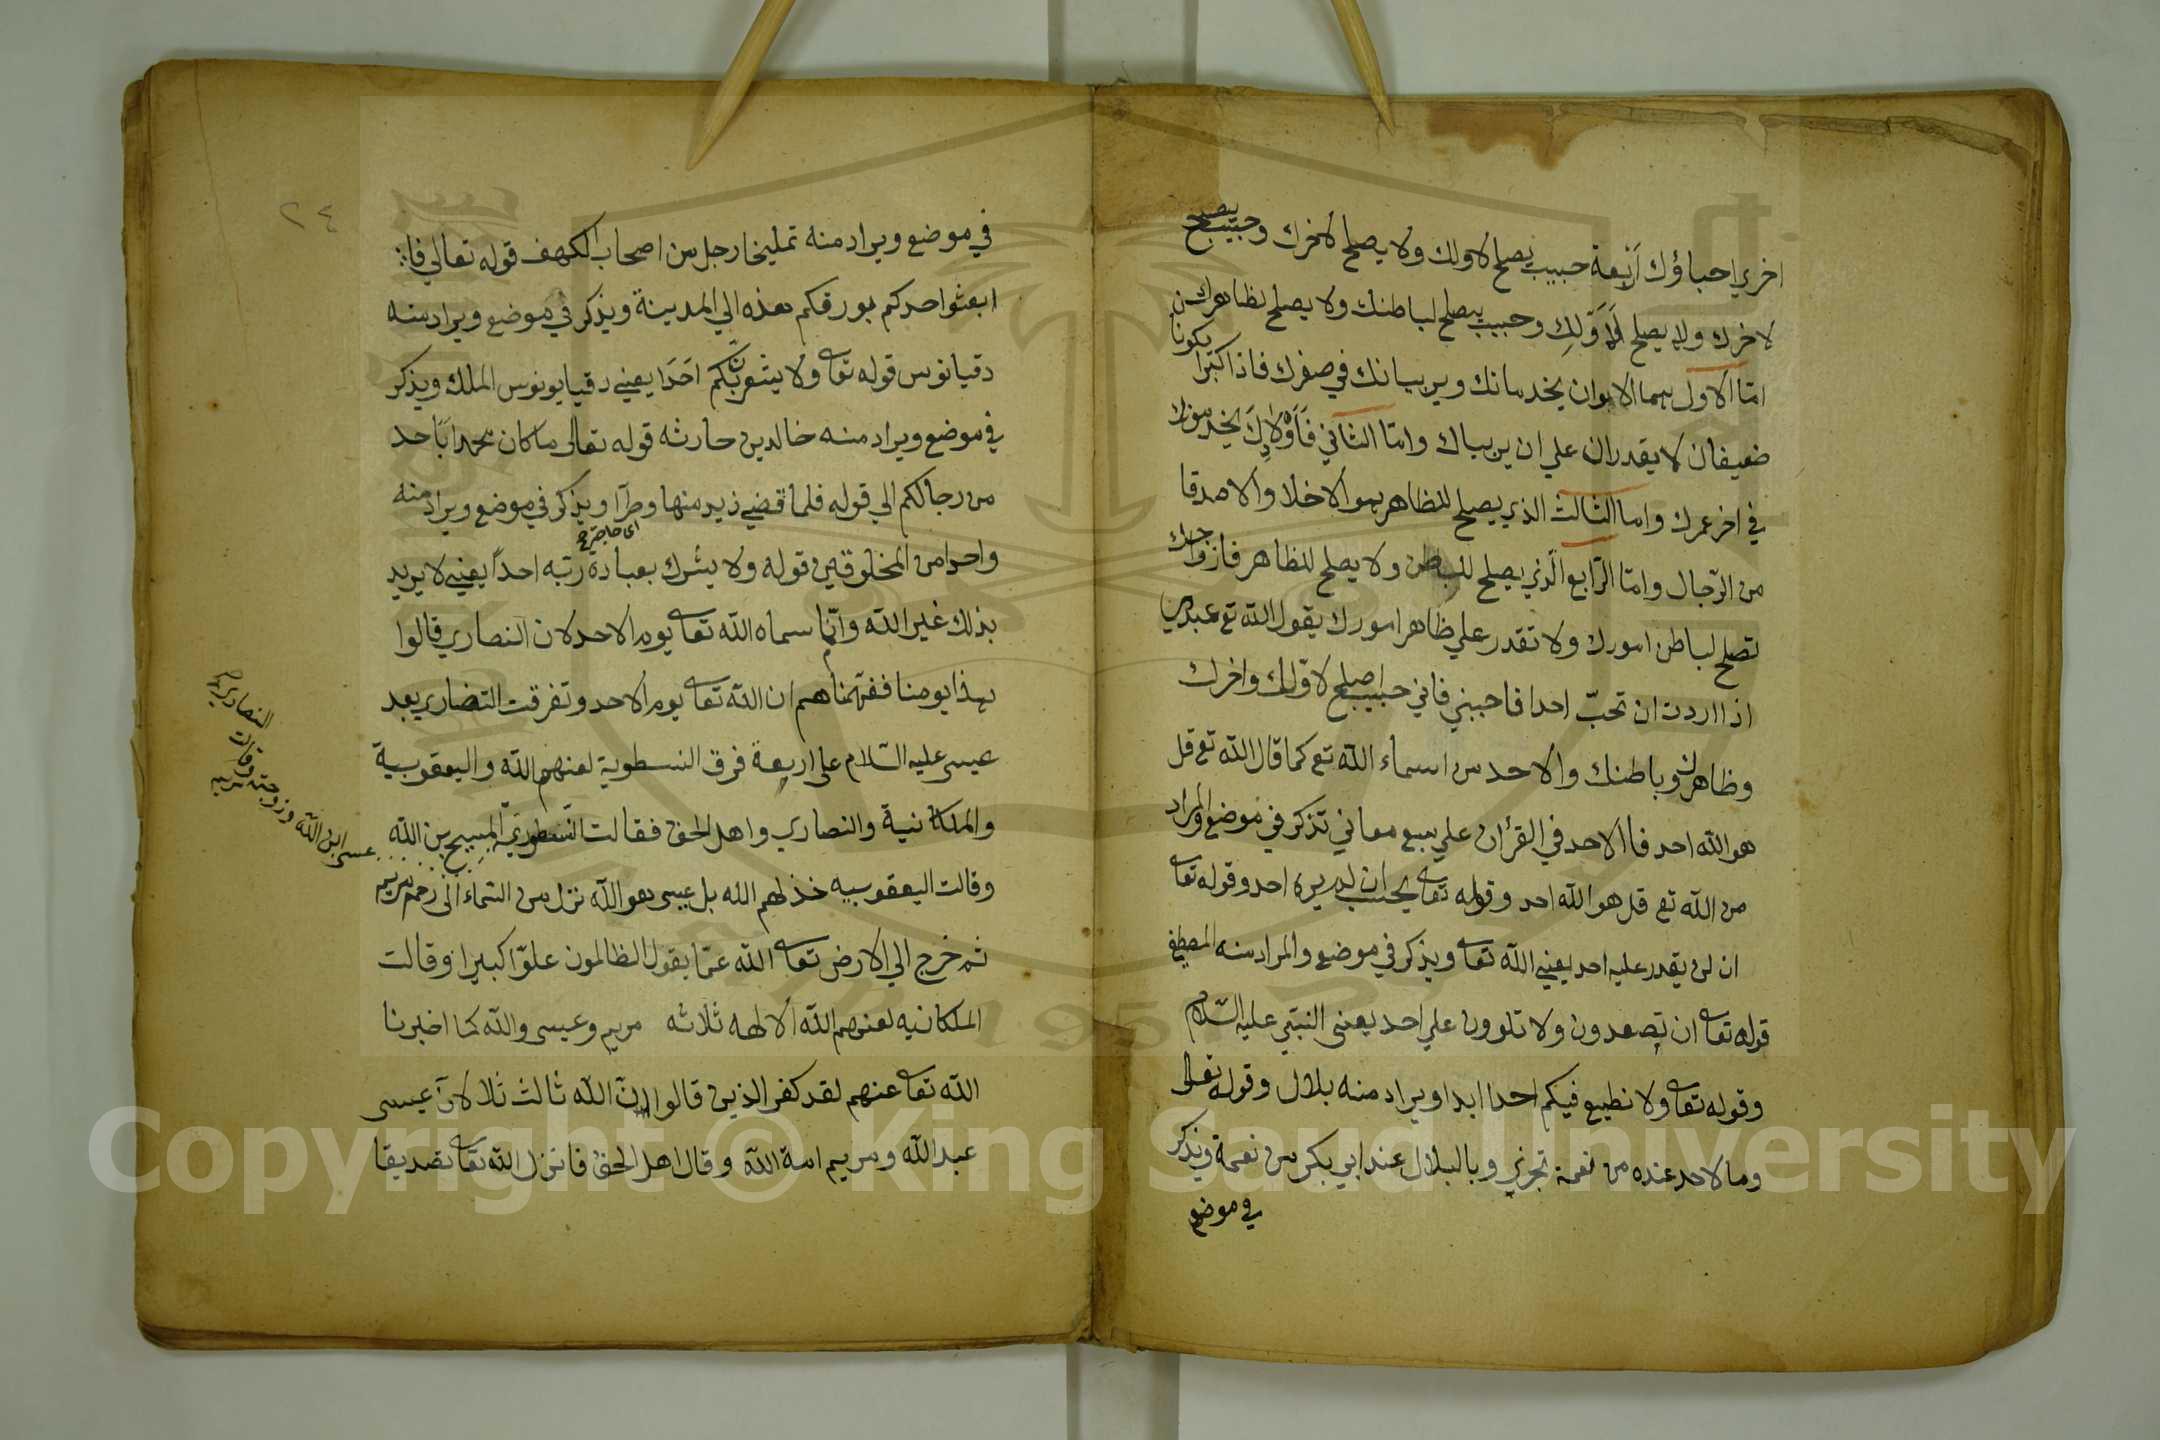 اخري احباؤك اربعة حبيب يصلح لاولك ولا يصلح لاخرك وحبيب يصلح
لاخرك ولا يصلح لاولك وحبيب يصلح لباطنك ولا يصلح لظاهرك
اما الاول هما الابوان يخدمانك ويربيانك في صغرك فاذا كبرا يكونا
ضعيفان لا يقدران علي ان يربياك واما الثاني فاولادك يخدمونك
في اخر عمرك واما الثالث الذي يصلح للظاهر هو الاخلا والاصدقا
من الرجال واما الرابع الذي يصلح للباطن ولا يصلح للظاهر فازواجك
تصلح لباطن امورك ولا تقدر علي ظاهر امورك يقول الله تع عبدي
اذا اردت ان تحب احدا فاحببني فاني حبيب اصلح لاولك واخرك
وظاهرك وباطنك والاحد من اسماء الله تع كما قال الله تع قل
هو الله احد فالاحد في القرأن علي سبع معاني تذكر في موضع والمراد
من الله تع قل هو الله احد وقوله تعا يحسب ان لم يره احد وقوله تعا
ان لن يقدر عليه احد يعني الله تعا ويذكر في موضع والمراد منه المصطفي
قوله تعا ان تصعدون ولا تلوون علي احد يعني النبي عليه السلام
وقوله تعا ولا نطيع فيكم احدا ابدا ويراد منه بلال وقوله تعالى
وما لاحد عنده من نعمة تجزي وبالبلال عند ابي بكر من نعمة ويذكر
في موضع
٢٤
في موضع ويراد منه تمليخا رجل من اصحاب الكهف قوله تعالي فا
ابعثوا احدكم بورقكم هذه الي المدينة ويذكر في موضع ويراد منه
دقيانوس قوله تعا ولا يشعرن بكم احدا يعني دقيايونوس الملك ويذكر
في موضع ويراد منه خالد بن حارثه قوله تعالى ما كان محمد ابا احد
من رجالكم الي قوله فلما قضي زيد منها وطرا ويذكر في موضع ويراد منه
واحدا من المخلوقين قوله ولا يشرك بعبادة ربه احدا يعني لا يريد
بذلك غير الله وانما سماه الله تعا يوم الاحد لان النصاري قالوا
هذا يومنا ان الله تعا يوم الاحد وتفرقت النصاري بعد
عيسى عليه السلام على اربعة فرق النسطورية لعنهم الله واليعقوبية
والملكانية والنصاري واهل الحق فقالت النسطورية المسيح بن الله
وقالت اليعقوبيه خذلهم الله بل عيسى هو الله نزل من السماء الى رحم مريم
ثم خرج الي الارض تعا الله عما يقول الظالمون علوا كبيرا وقالت
الملكانيه لعنهم الله الالهه ثلاثه مريم وعيسى والله كما اخبرنا
الله تعا عنهم لقد كفر الذين قالوا ان الله ثالث ثلا لان عيسى
عبد الله ومريم امة الله وقال اهل الحق فانزل الله تعا تصديقا
وقالت النصاري
عيسى ابن الله وزوجته مريم
Copyright © King Saud University